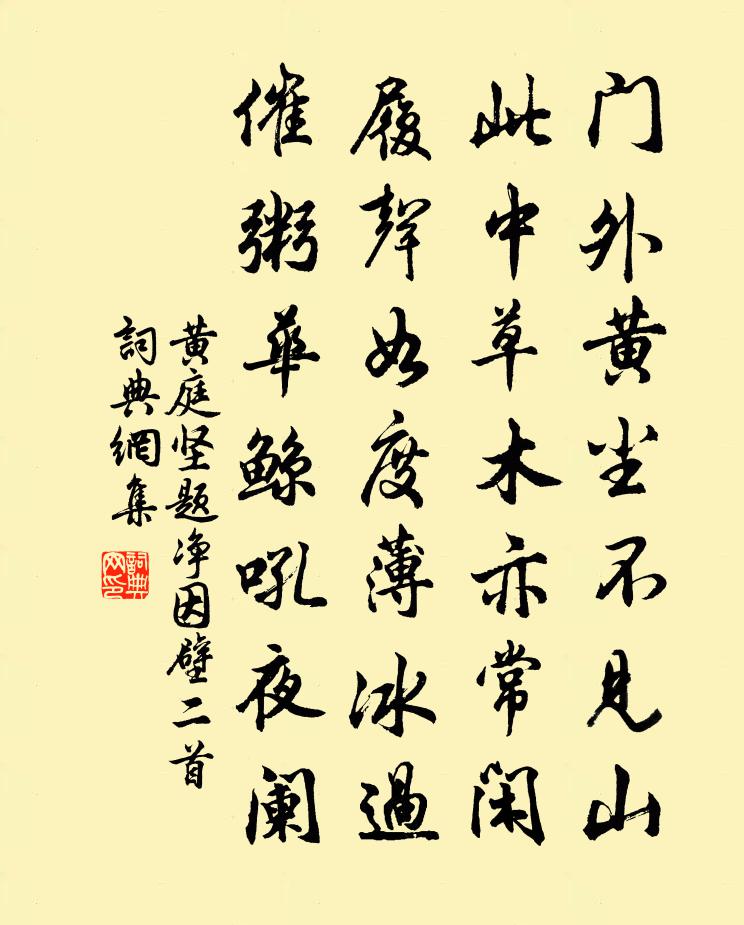 门外黄尘不见山
此中草木亦常闲
履声如度薄冰过
催粥华鲸吼夜阑
黄庭坚题净因壁二首
詞典網集
詞典网印